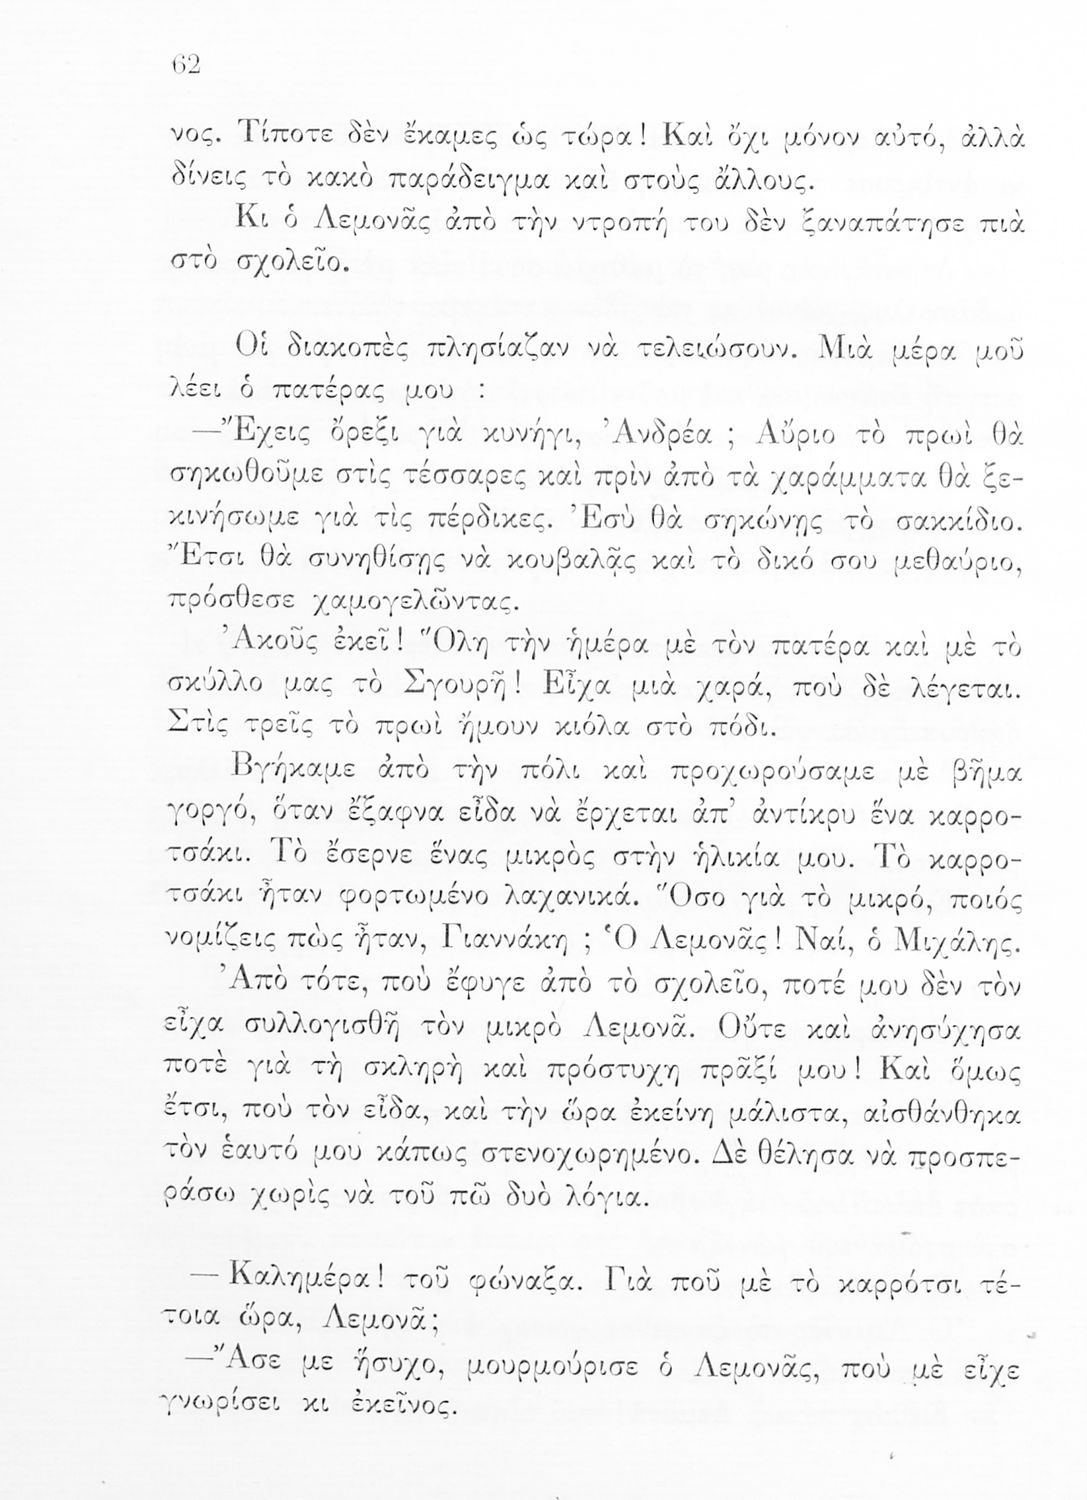 62
νος. Τίποτε δὲν ἔκαμες ὡς τώρα! Καὶ ὄχι μόνον αὐτό, ἀλλὰ
δίνεις τὸ κακὸ παράδειγμα καὶ στοὺς ἄλλους.
Κι ὁ Λεμονᾶς ἀπὸ τὴν ντροπή του δὲν ξαναπάτησε πιὰ
στὸ σχολεῖο.
Οἱ διακοπὲς πλησίαζαν νὰ τελειώσουν. Μιὰ μέρα μοῦ
λέει ὁ πατέρας μου :
—Ἔχεις ὄρεξι γιὰ κυνήγι, Ἀνδρέα ; Αὔριο τὸ πρωὶ θὰ
σηκωθοῦμε στὶς τέσσαρες καὶ πρὶν ἀπὸ τὰ χαράμματα θὰ ξε-
κινήσωμε γιὰ τὶς πέρδικες. Ἐσὺ θὰ σηκώνῃς τὸ σακκίδιο.
Ἔτσι θὰ συνηθίσῃς νὰ κουβαλᾷς καὶ τὸ δικό σου μεθαύριο,
πρόσθεσε χαμογελῶντας.
Ἀκοῦς ἐκεῖ! Ὅλη τὴν ἡμέρα μὲ τὸν πατέρα καὶ μὲ τὸ
σκύλλο μας τὸ Σγουρῆ! Εἶχα μιὰ χαρά, ποὺ δὲ λέγεται.
Στὶς τρεῖς τὸ πρωὶ ἤμουν κιόλα στὸ πόδι.
Βγήκαμε ἀπὸ τὴν πόλι καὶ προχωρούσαμε μὲ βῆμα
γοργό, ὅταν ἔξαφνα εἶδα νὰ ἔρχεται ἀπ’ ἀντίκρυ ἕνα καρρο-
τσάκι. Τὸ ἔσερνε ἕνας μικρὸς στὴν ἡλικία μου. Τὸ καρρο-
τσάκι ἦταν φορτωμένο λαχανικά. Ὅσο γιὰ τὸ μικρό, ποιός
νομίζεις πὼς ἦταν, Γιαννάκη ; Ὁ Λεμονᾶς! Ναί, ὁ Μιχάλης.
Ἀπὸ τότε, ποὺ ἔφυγε ἀπὸ τὸ σχολεῖο, ποτέ μου δὲν τὸν
εἶχα συλλογισθῆ τὸν μικρὸ Λεμονᾶ. Οὔτε καὶ ἀνησύχησα
ποτὲ γιὰ τὴ σκληρὴ καὶ πρόστυχη πρᾶξί μου! Καὶ ὅμως
ἔτσι, ποὺ τὸν εἶδα, καὶ τὴν ὥρα ἐκείνη μάλιστα, αἰσθάνθηκα
τὸν ἑαυτό μου κάπως στενοχωρημένο. Δὲ θέλησα νὰ προσπε-
ράσω χωρὶς νὰ τοῦ πῶ δυὸ λόγια.
— Καλημέρα! τοῦ φώναξα. Γιὰ ποῦ μὲ τὸ καρρότσι τέ-
τοια ὥρα, Λεμονᾶ;
—Ἄσε με ἥσυχο, μουρμούρισε ὁ Λεμονᾶς, ποὺ μὲ εἶχε
γνωρίσει κι ἐκεῖνος.